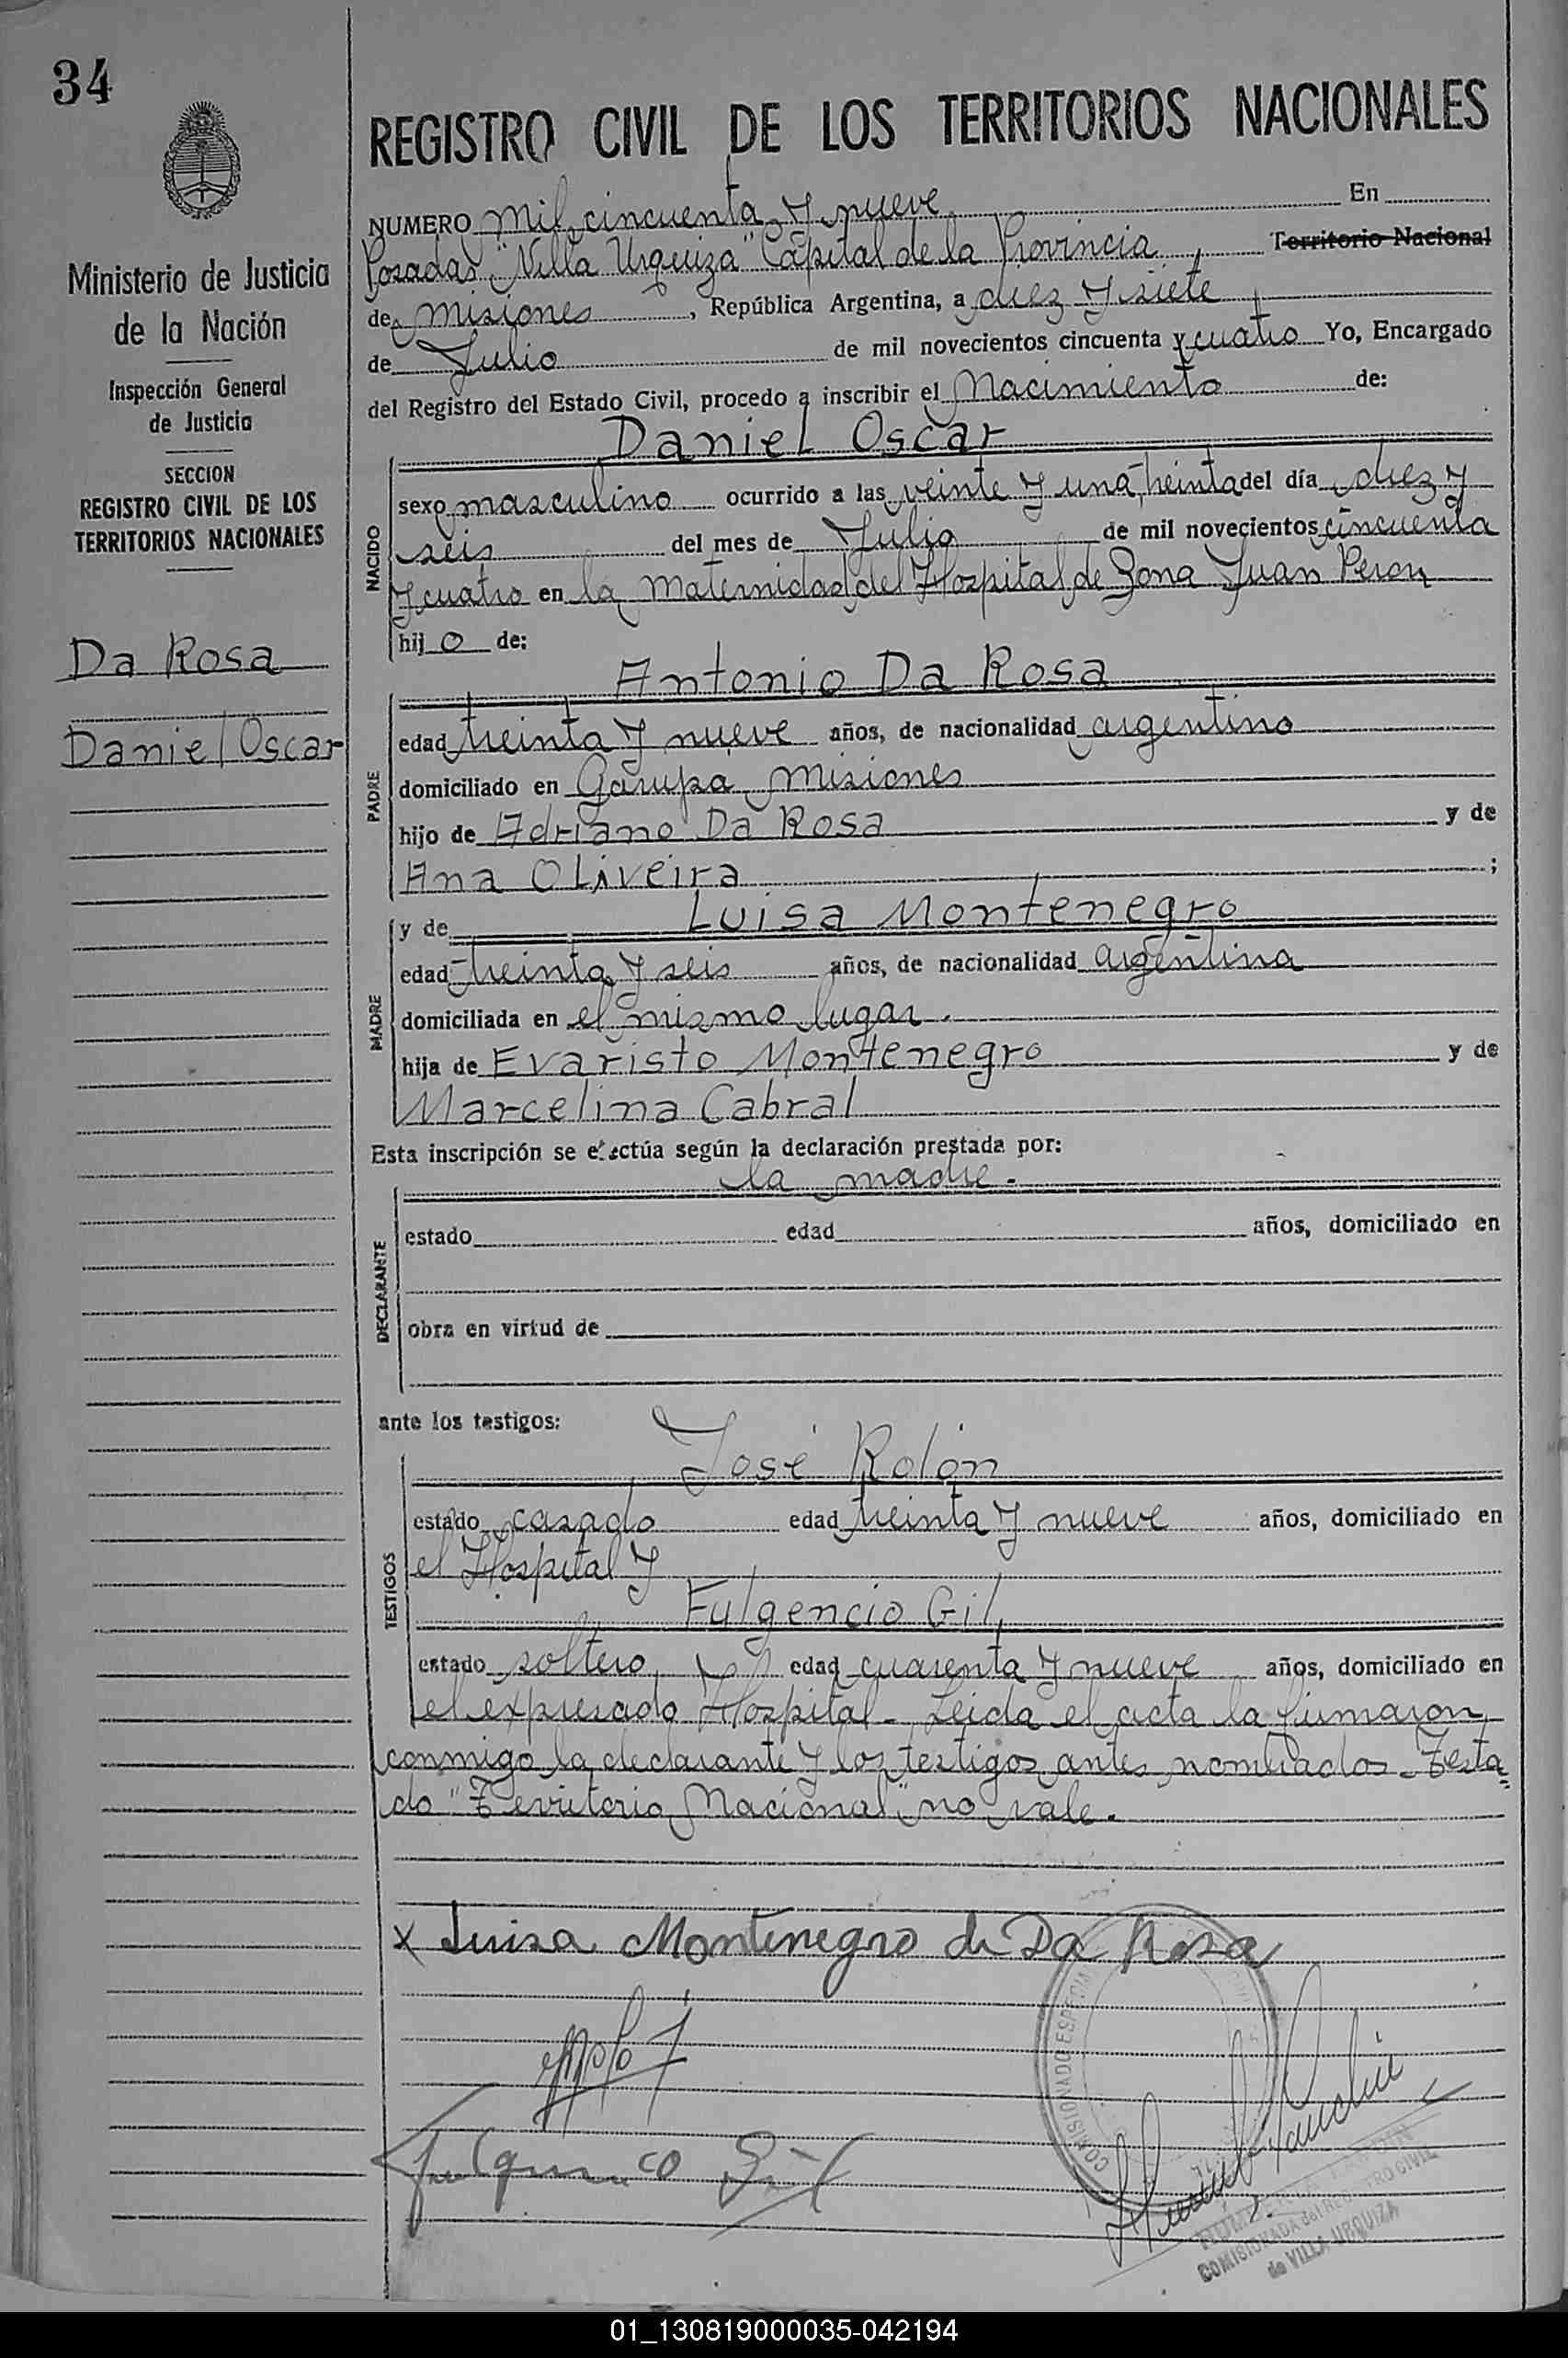 34
REGISTRO CIVIL DE LOS TERRITORIOS NACIONALES
Ministerio de Justicia
de la Nación
Inspección General
de Justicia
SECCION
REGISTRO CIVIL DE LOS
TERRITORIOS NACIONALES
Da Rosa
Daniel Oscar
NUMERO mil cincuenta y nueve En
Posadas, "Villa Urquiza" Capital de la Provincia, Territorio Nacional
de Misiones, República Argentina, a diez y siete
de Julio de mil novecientos cincuenta y cuatro Yo, Encargado
del Registro del Estado Civil, procedo a inscribir el Nacimiento de:
Daniel Oscar
NACIDO
sexo masculino ocurrido a las veinte y una treinta del día diez y
seis del mes de Julio de mil novecientos cincuenta
y cuatro en la Maternidad del Hospital de Zona Juan Peron
hijo de:
Antonio Da Rosa
PADRE
edad treinta y nueve años, de nacionalidad argentino
domiciliado en Garupa, Misiones
hijo de Adriano Da Rosa y de
Ana Oliveira ;
y de Luisa Montenegro
MADRE
edad treinta y seis años, de nacionalidad argentina
domiciliada en el mismo lugar.
hija de Evaristo Montenegro y de
Marcelina Cabral
Esta inscripción se efectúa según la declaración prestada por:
la madre.-
DECLARANTE
estado edad años, domiciliado en
obra en virtud de
ante los testigos:
José Rolón
TESTIGOS
estado casado edad treinta y nueve años, domiciliado en
el Hospital y
Fulgencio Gil,
estado soltero, edad cuarenta y nueve años, domiciliado en
el expresado Hospital.- Leida el acta la firmaron
conmigo la declarante y los testigos antes nombrados.- Testa=
do "Territorio Nacional", no vale.-
x Luisa Montenegro de Da Rosa
Fulgencio Gil
COMISIONADO ESPECIAL
COMISIONADA del REGISTRO CIVIL
de VILLA URQUIZA
01_130819000035-042194